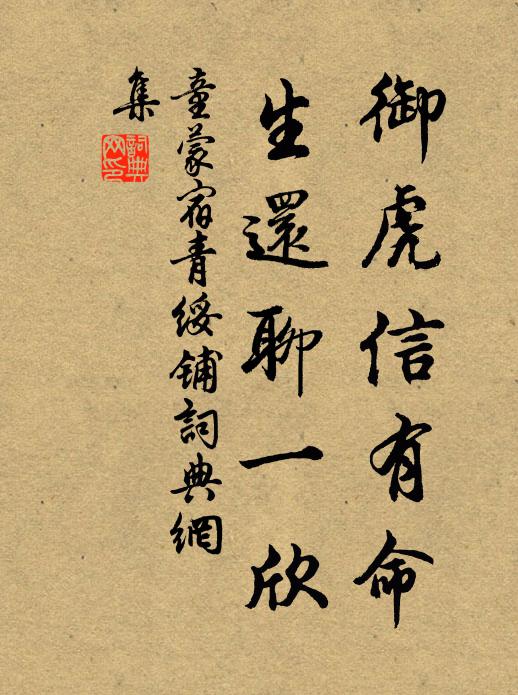 御虎信有命
生還聊一欣
童蒙宿青綏铺詞典網
集
詞典
网印